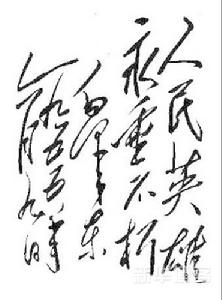 人民英雄
永垂不朽
毛泽东
一九五五年